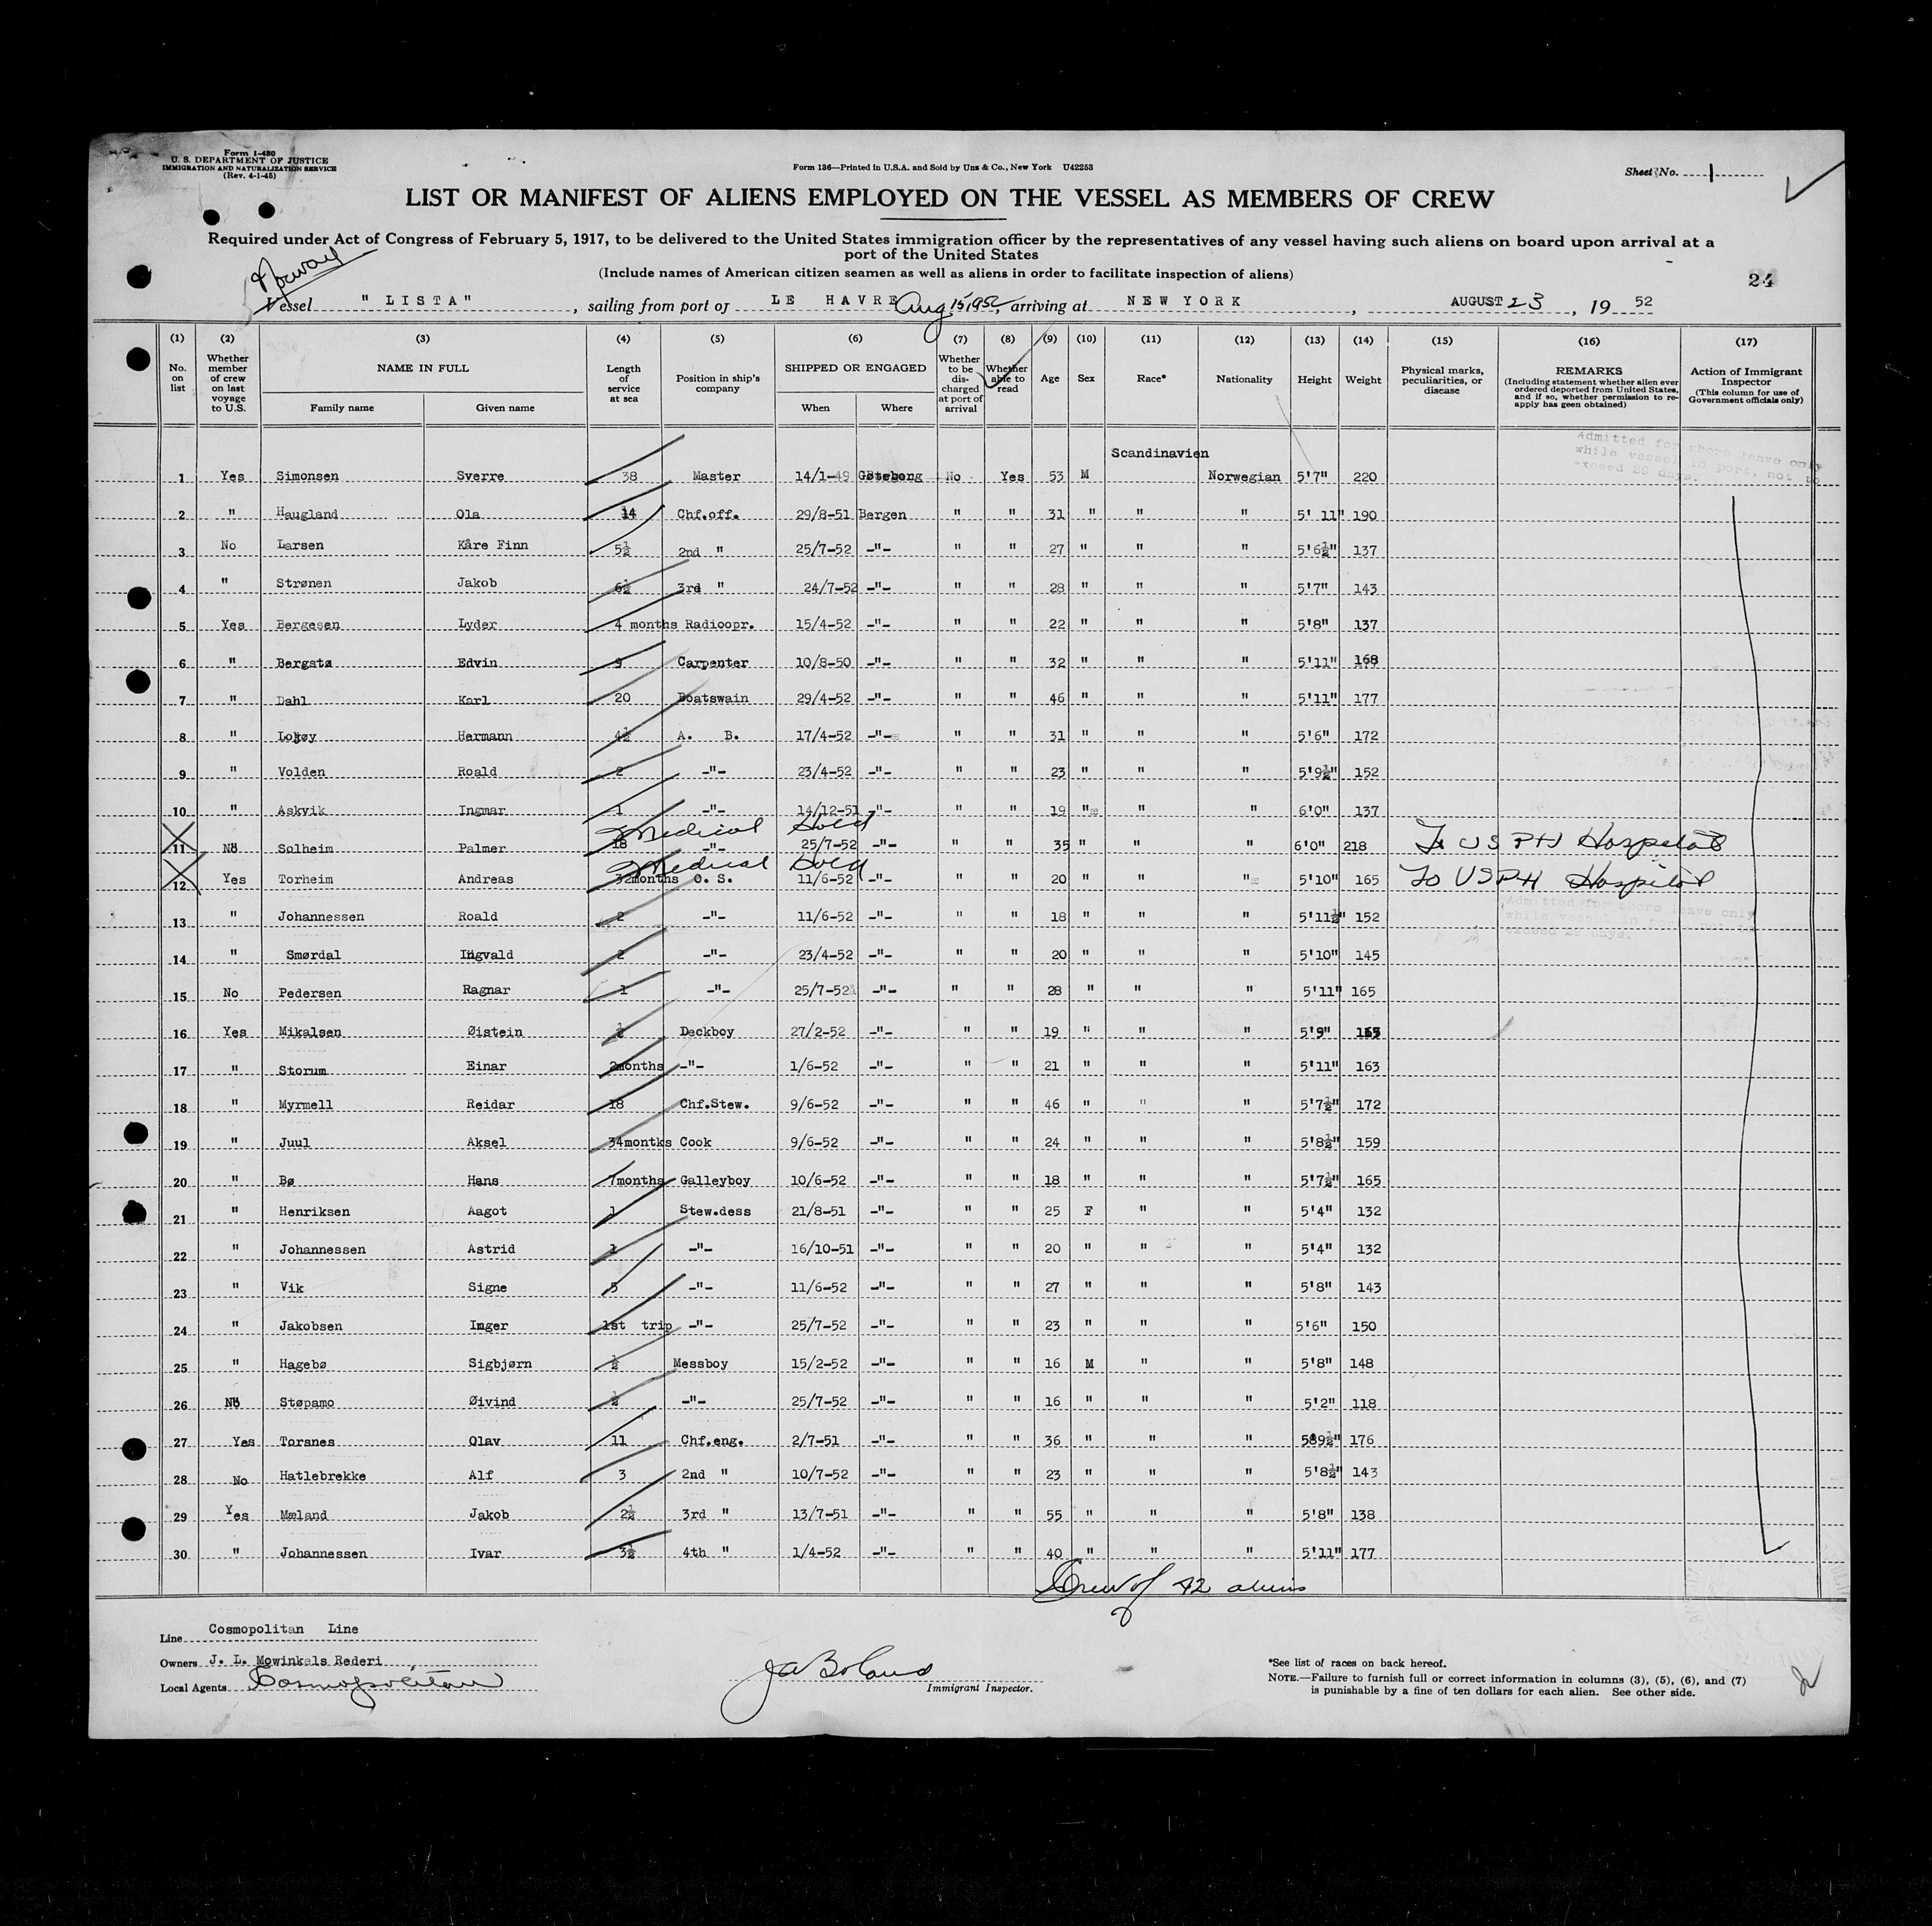 Form I-480
U. S. DEPARTMENT OF JUSTICE
IMMIGRATION AND NATURALIZATION SERVICE
(Rev. 4-1-45)
Form 136—Printed in U.S.A. and Sold by Unz & Co., New York U42253
Sheet No. 1
LIST OR MANIFEST OF ALIENS EMPLOYED ON THE VESSEL AS MEMBERS OF CREW
Required under Act of Congress of February 5, 1917, to be delivered to the United States immigration officer by the representatives of any vessel having such aliens on board upon arrival at a
port of the United States
(Include names of American citizen seamen as well as aliens in order to facilitate inspection of aliens)
24
Norway
Vessel "LISTA", sailing from port of LE HAVRE Aug 15, 1952, arriving at NEW YORK, AUGUST 23, 19 52
(1) (2) (3) (4) (5) (6) (7) (8) (9) (10) (11) (12) (13) (14) (15) (16) (17)
No. on list
Whether member of crew on last voyage to U.S.
NAME IN FULL
Family name
Given name
Length of service at sea
Position in ship's company
SHIPPED OR ENGAGED
When
Where
Whether to be discharged at port of arrival
Whether able to read
Age
Sex
Race*
Nationality
Height
Weight
Physical marks, peculiarities, or disease
REMARKS
(Including statement whether alien ever ordered deported from United States, and if so, whether permission to reapply has geen obtained)
Action of Immigrant Inspector
(This column for use of Government officials only)
Admitted for shore leave only
while vessel in port, not to
exceed 29 days.
Scandinavien
1 Yes Simonsen Sverre 38 Master 14/1-49 Gøteborg No Yes 53 M Norwegian 5'7" 220
2 " Haugland Ola 14 Chf.off. 29/8-51 Bergen " " 31 " " " 5' 11" 190
3 No Larsen Kåre Finn 5½ 2nd " 25/7-52 -"- " " 27 " " " 5'6½" 137
4 " Strønen Jakob 6½ 3rd " 24/7-52 -"- " " 28 " " " 5'7" 143
5 Yes Bergesen Lyder 4 months Radioopr. 15/4-52 -"- " " 22 " " " 5'8" 137
6 " Bergstø Edvin 9 Carpenter 10/8-50 -"- " " 32 " " " 5'11" 168
7 " Dahl Karl 20 Boatswain 29/4-52 -"- " " 46 " " " 5'11" 177
8 " Hermann 4½ A. B. 17/4-52 -"- " " 31 " " " 5'6" 172
9 " Volden Roald 2 -"- 23/4-52 -"- " " 23 " " " 5'9½" 152
10 " Askvik Ingmar 1 -"- 14/12-51 -"- " " 19 " " " 6'0" 137
Medical Hold
11 No Solheim Palmer 18 -"- 25/7-52 -"- " " 35 " " " 6'0" 218 To USPH Hospital
Medical Hold
12 Yes Torheim Andreas 32months O. S. 11/6-52 -"- " " 20 " " " 5'10" 165 To USPH Hospital
Admitted for shore leave only
while vessel in port, not to
exceed 29 days.
13 " Johannessen Roald 2 -"- 11/6-52 -"- " " 18 " " " 5'11½" 152
14 " Smørdal Ingvald 2 -"- 23/4-52 -"- " " 20 " " " 5'10" 145
15 No Pedersen Ragnar 1 -"- 25/7-52 -"- " " 28 " " " 5'11" 165
16 Yes Mikalsen Øistein ½ Deckboy 27/2-52 -"- " " 19 " " " 5'9"
17 " Storum Einar 2months -"- 1/6-52 -"- " " 21 " " " 5'11" 163
18 " Myrmell Reidar 18 Chf.Stew. 9/6-52 -"- " " 46 " " " 5'7½" 172
19 " Juul Aksel 34months Cook 9/6-52 -"- " " 24 " " " 5'8½" 159
20 " Bø Hans 7months Galleyboy 10/6-52 -"- " " 18 " " " 5'7½" 165
21 " Henriksen Aagot 1 Stew.dess 21/8-51 -"- " " 25 F " " 5'4" 132
22 " Johannessen Astrid 1 -"- 16/10-51 -"- " " 20 " " " 5'4" 132
23 " Vik Signe 5 -"- 11/6-52 -"- " " 27 " " " 5'8" 143
24 " Jakobsen Inger 1st trip -"- 25/7-52 -"- " " 23 " " " 5'6" 150
25 " Hagebø Sigbjørn ½ Messboy 15/2-52 -"- " " 16 M " " 5'8" 148
26 No Støpamo Øivind ½ -"- 25/7-52 -"- " " 16 " " " 5'2" 118
27 Yes Torsnes Olav 11 Chf.eng. 2/7-51 -"- " " 36 " " " 5'9½" 176
28 No Hatlebrekke Alf 3 2nd " 10/7-52 -"- " " 23 " " " 5'8½" 143
29 Yes Mæland Jakob 2½ 3rd " 13/7-51 -"- " " 55 " " " 5'8" 138
30 " Johannessen Ivar 3½ 4th " 1/4-52 -"- " " 40 " " " 5'11" 177
Crew of 42 aliens
Line Cosmopolitan Line
Owners J. L. Mowinkels Rederi
Local Agents Cosmopolitan
J A Boland
Immigrant Inspector.
*See list of races on back hereof.
NOTE.—Failure to furnish full or correct information in columns (3), (5), (6), and (7)
is punishable by a fine of ten dollars for each alien. See other side.
2